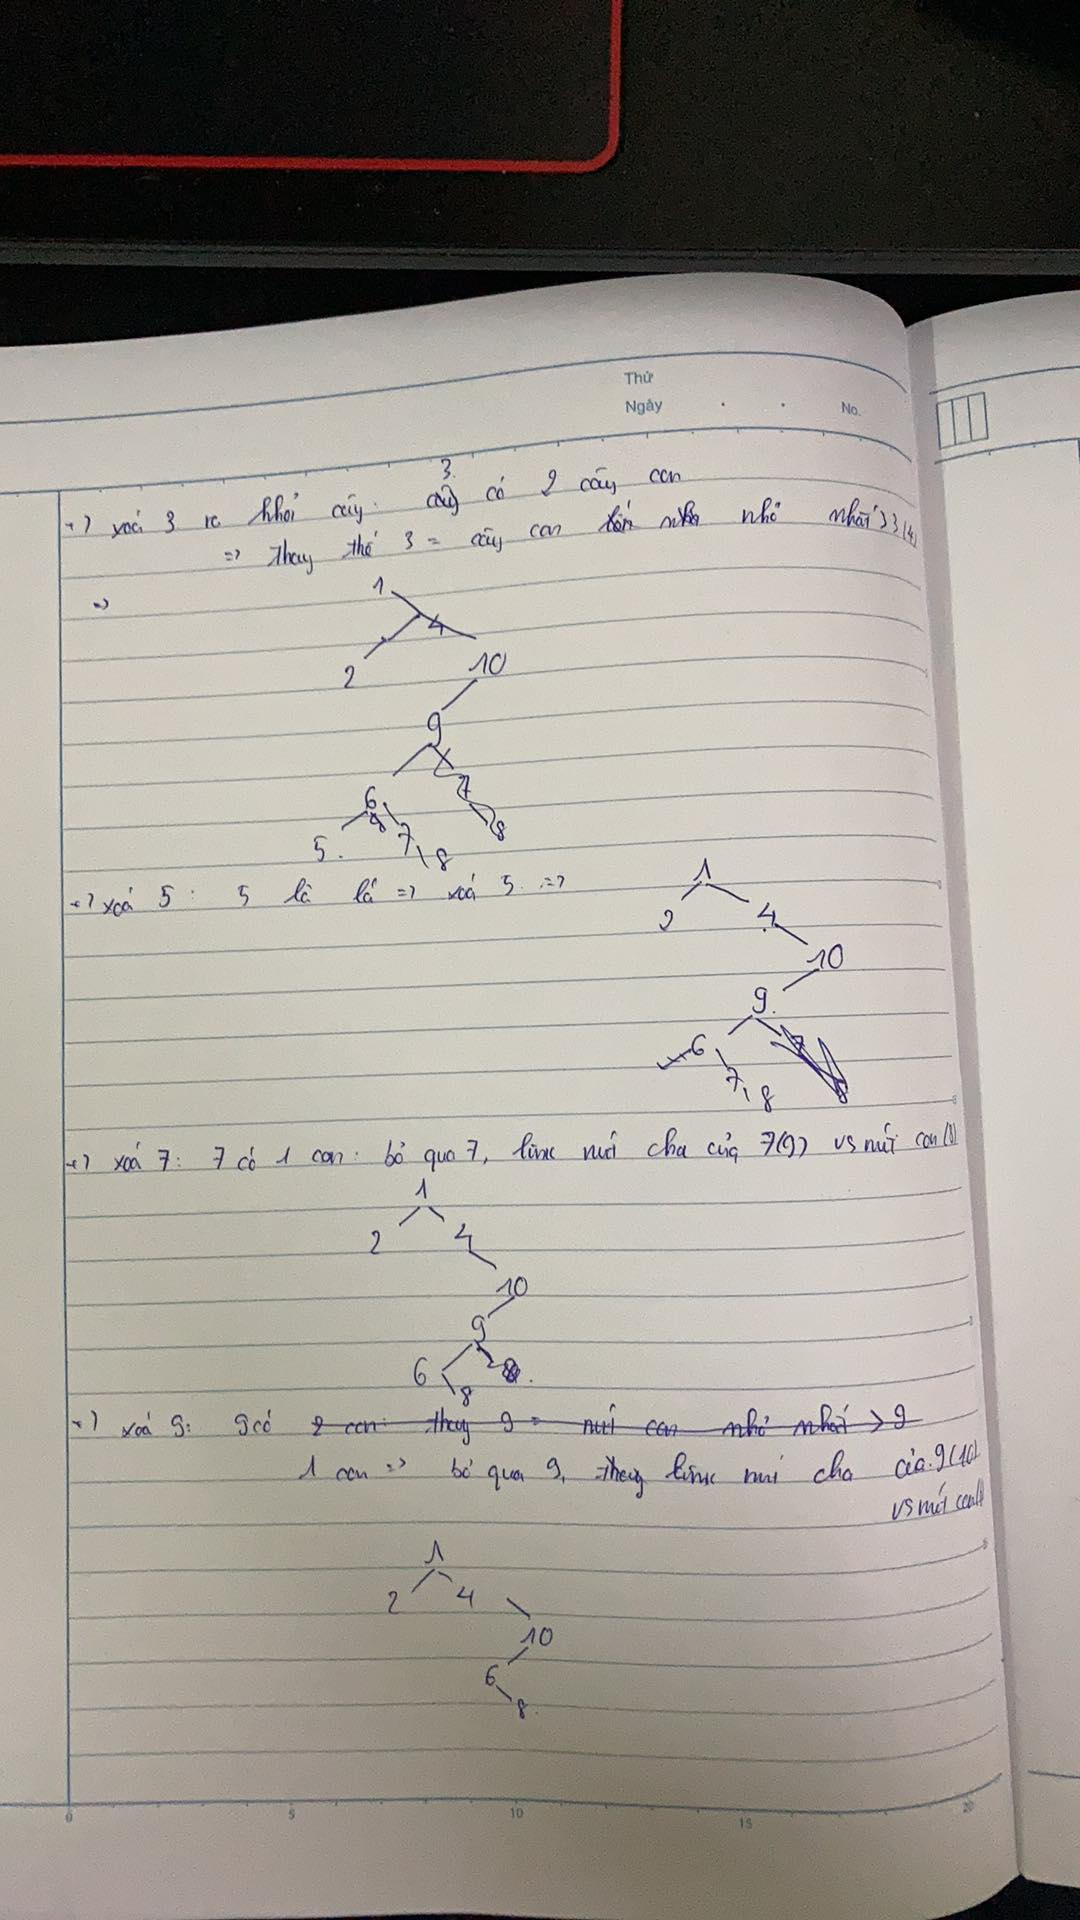 Thứ
Ngày . . No.
+) xoá 3 ra khỏi cây: 3 có 2 cây con
=> Thay thế 3 = cây con nhỏ nhất > 3 (4)
=>
1
4
2
10
9
7
6
8
5.
7
8
+) xoá 5: 5 là lá => xoá 5. =>
1
2
4
10
9.
6
7
8
+) xoá 7: 7 có 1 con: bỏ qua 7, link nút cha của 7(9) vs nút con (8)
1
2
4
10
9
6
8
+) xoá 9: 9 có 2 con: thay 9 = nút con nhỏ nhất > 9
1 con => bỏ qua 9, link nút cha của 9(10)
vs nút con
1
2
4
10
6
8
0 5 10 15 20